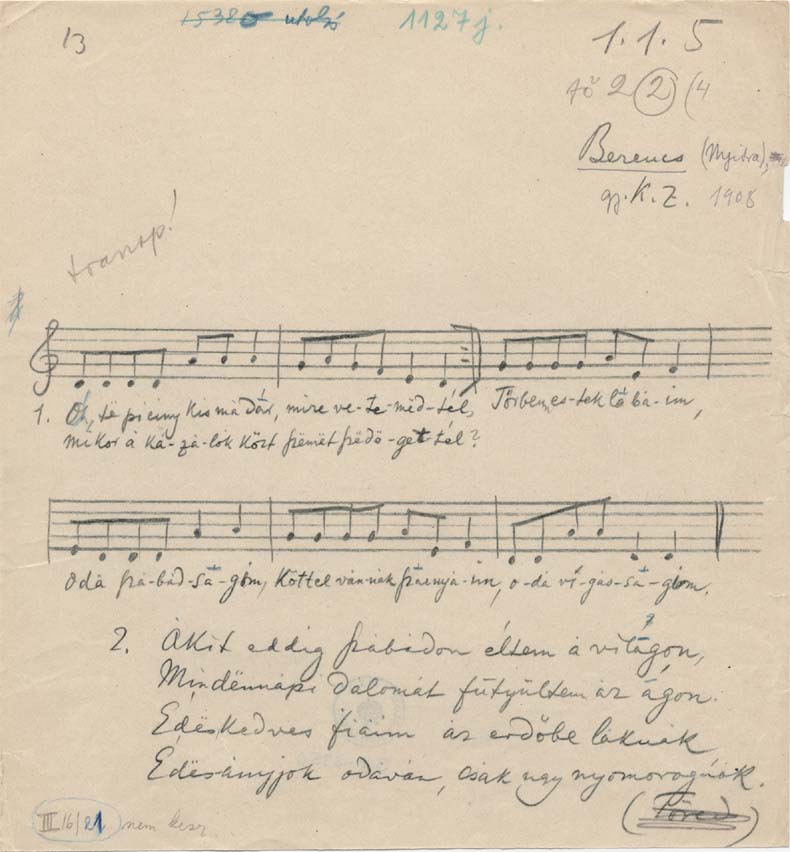 13
15386 utolsó
1127 j.
1.1.5
fő 2 (2) (4
Berencs (Nyitra),
gy. K. Z. 1908
transp!
1. Óh, të piciny kis mȧdár, mire ve-te-mëd-tél, Tőrbem es-tek lá-ba-im,
mikor ȧ kȧ-zȧ-lok közt szëmët szëdë-get-tél?
Odȧ szȧ-bȧd-sá-gom, Köttel vȧn-nȧk szárnyȧ-im, o-dȧ vi-gȧs-sá-gom.
2. Ȧkit eddig szȧbȧdon éltem ȧ világon,
Mindënnȧpi dȧlomȧt fütyültem ȧz ágon.
Édëskedves fiȧim ȧz erdőbe lȧknȧk
Édësȧnyjok odȧvȧn, csȧk ugy nyomorognȧk.
(Töred)
III 16/21 nem kész